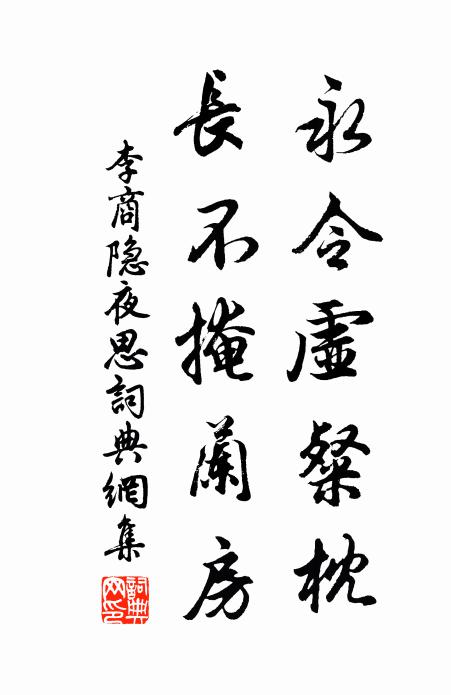 永令虚粲枕
長不掩蘭房
李商隐夜思詞典網集
詞典網印